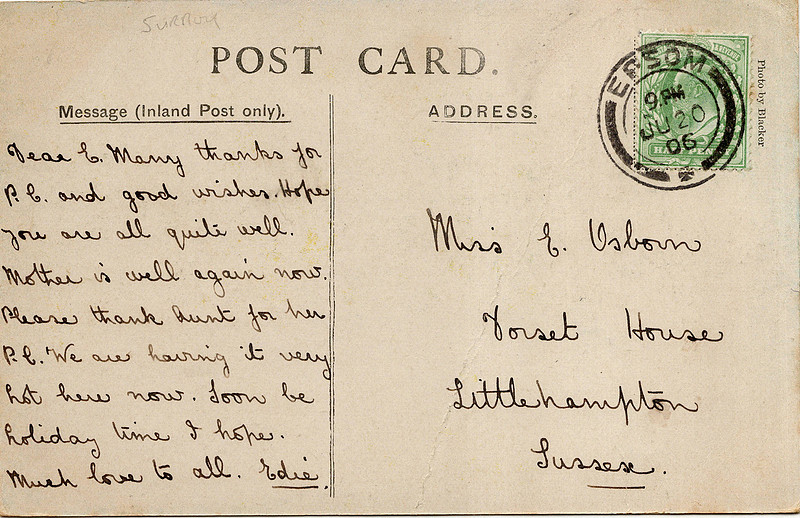 SURREY
POST CARD.
Message (Inland Post only).
ADDRESS.
Dear E. Many thanks for
P.C. and good wishes. Hope
you are all quite well.
Mother is well again now.
Please thank Aunt for her
P.C. We are having it very
hot here now. Soon be
holiday time I hope.
Much love to all. Edie.
EPSOM
9. PM
JU 20
06
Photo by Blacker
Miss E. Osborn
Dorset House
Littlehampton
Sussex.